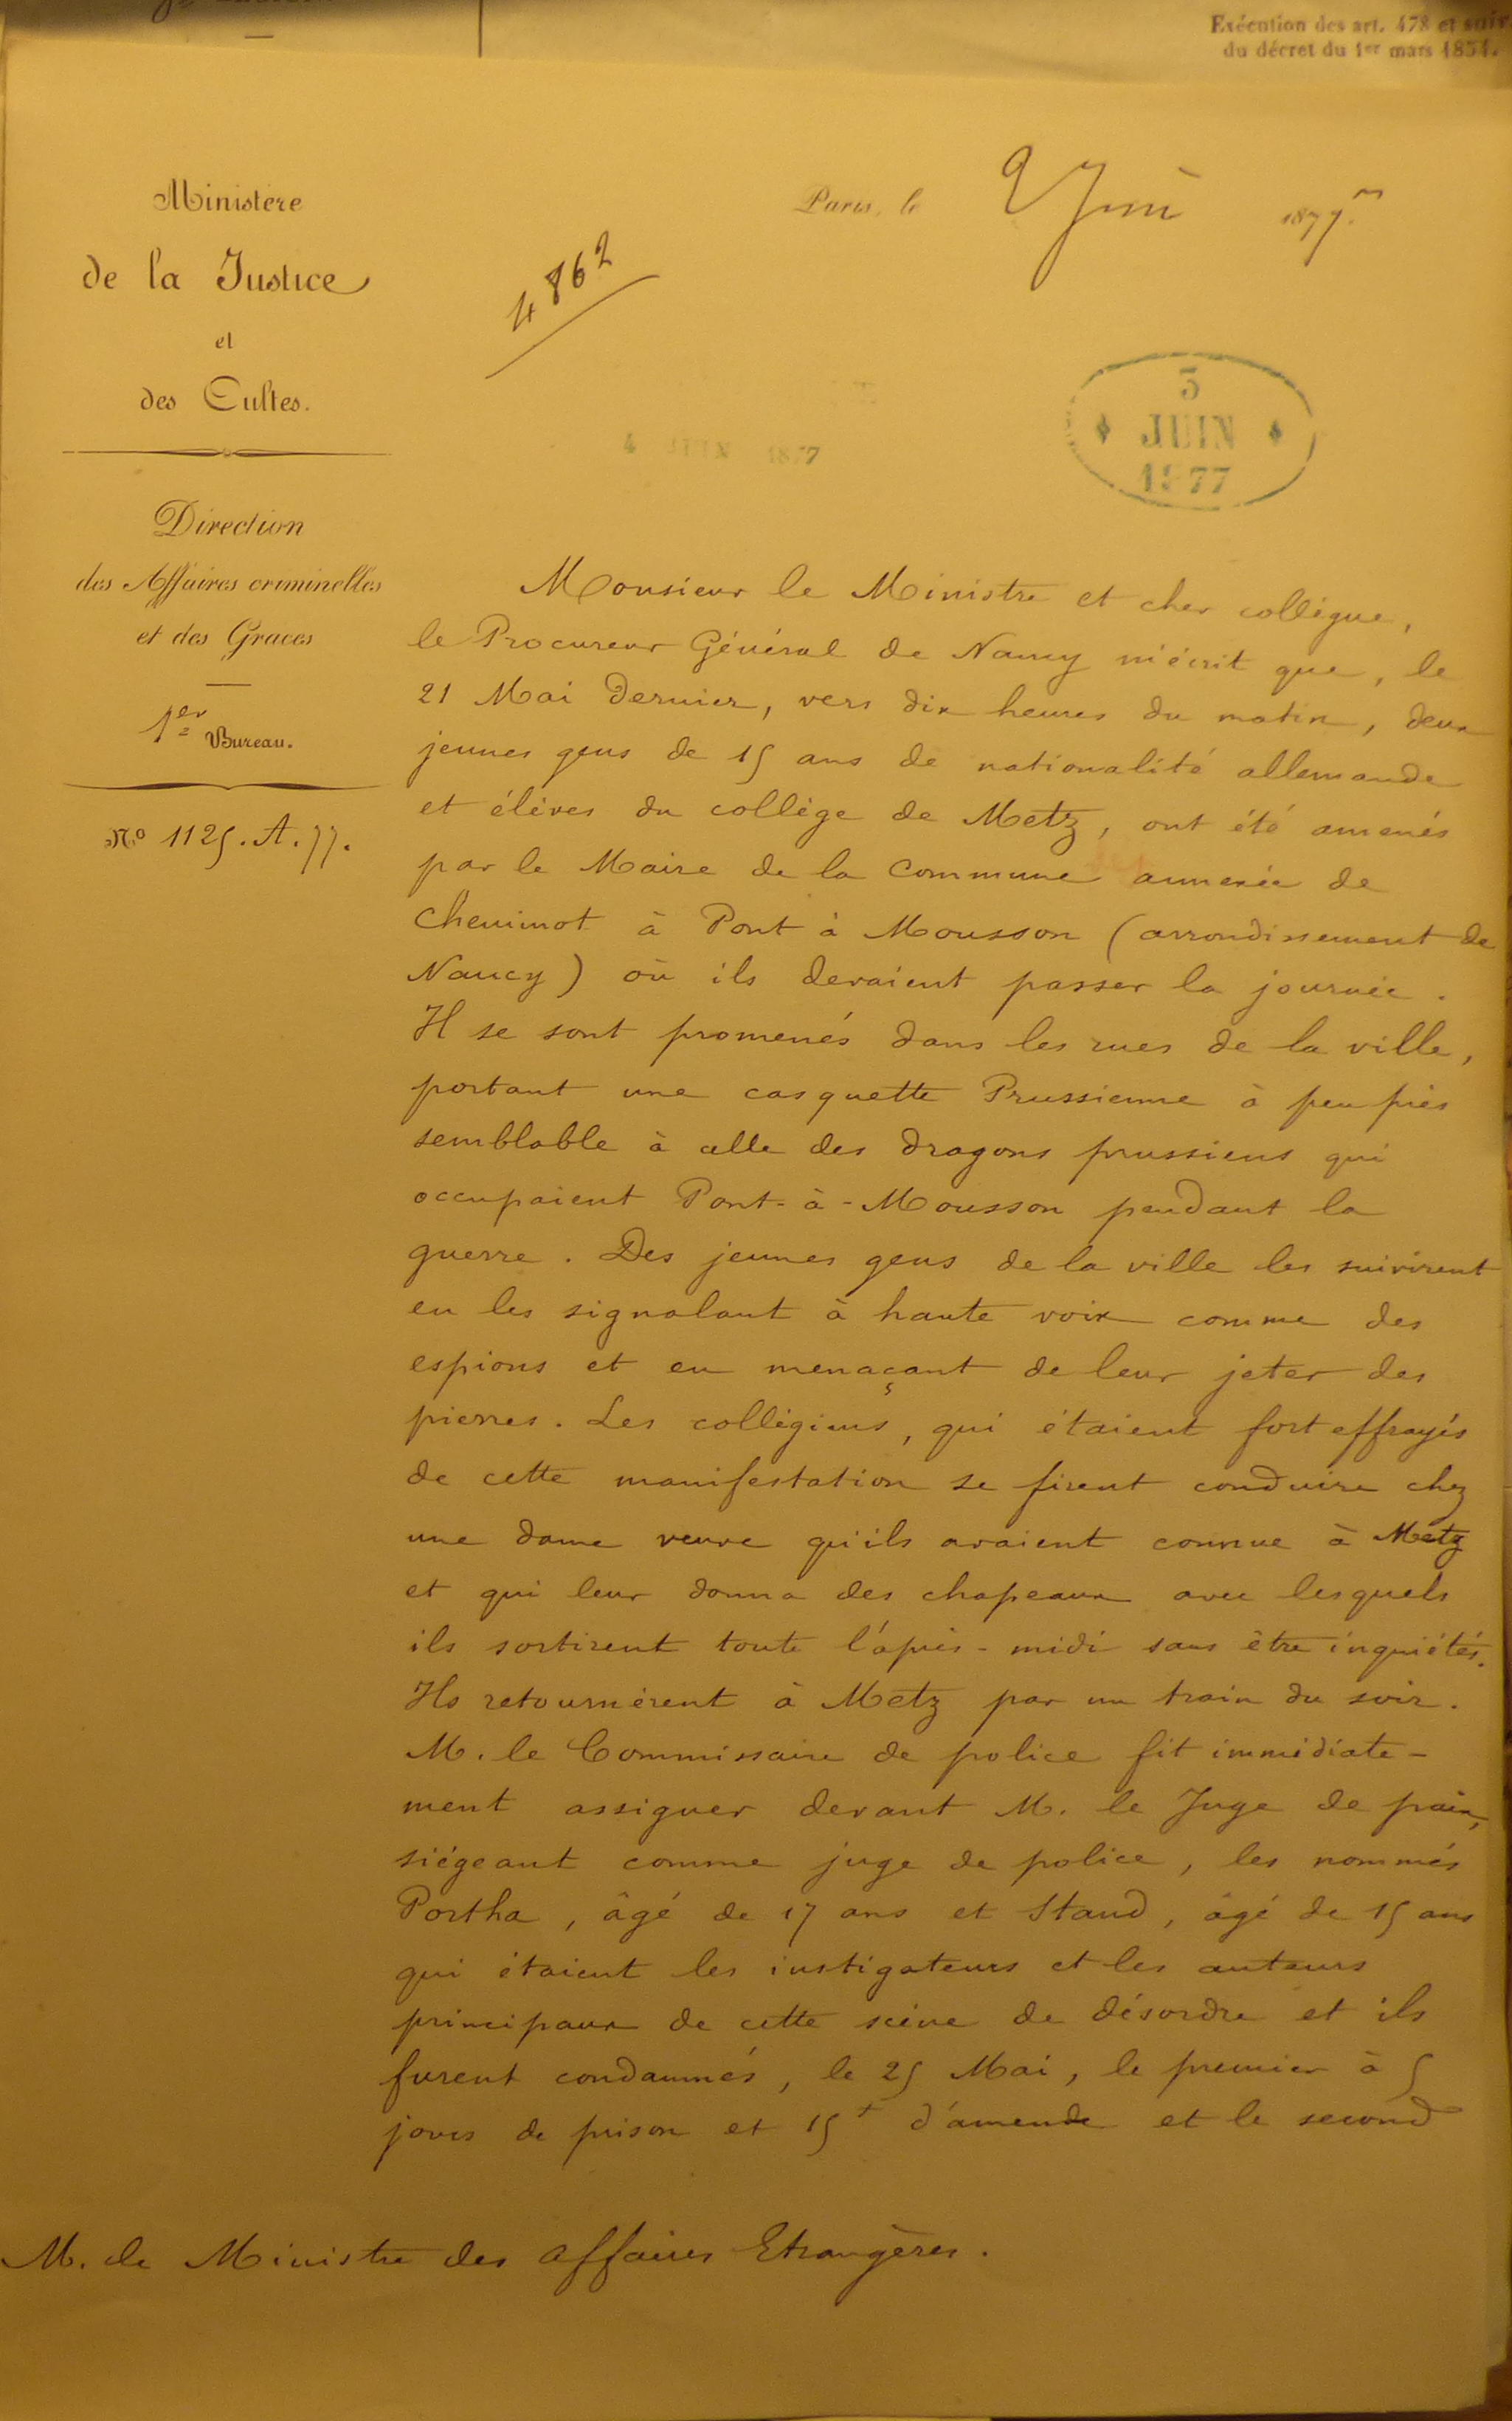 Exécution des art. 478 et suiv
du décret du 1er mars 1854.
Ministère
de la Justice
et
des Cultes.
Direction
des Affaires criminelles
et des Graces
1er Bureau.
No 1125. A. 77.
Paris, le 2 Juin 1877.
4862
3
JUIN
1877
4 JUIN 1877
Monsieur le Ministre et cher collègue,
le Procureur Général de Nancy m'écrit que, le
21 Mai dernier, vers dix heures du matin, deux
jeunes gens de 15 ans de nationalité allemande
et élèves du collège de Metz, ont été amenés
par le Maire de la commune annexée de
Cheminot à Pont à Mousson (arrondissement de
Nancy) où ils devaient passer la journée.
Il se sont promenés dans les rues de la ville,
portant une casquette Prussienne à peu près
semblable à celle des dragons prussiens qui
occupaient Pont-à-Mousson pendant la
guerre. Des jeunes gens de la ville les suivirent
en les signalant à haute voix comme des
espions et en menaçant de leur jeter des
pierres. Les collégiens, qui étaient fort effrayés
de cette manifestation se firent conduire chez
une dame veuve qu'ils avaient connue à Metz
et qui leur donna des chapeaux avec lesquels
ils sortirent toute l'après-midi sans être inquiétés.
Ils retournèrent à Metz par un train du soir.
M. le Commissaire de police fit immédiate-
ment assigner devant M. le Juge de paix,
siégeant comme juge de police, les nommés
Portha, âgé de 17 ans et Staud, âgé de 15 ans
qui étaient les instigateurs et les auteurs
principaux de cette scène de désordre et ils
furent condamnés, le 25 Mai, le premier à 5
jours de prison et 15f d'amende et le second
M. le Ministre des affaires Etrangères.